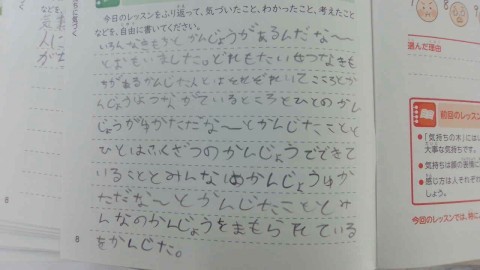 今日のレッスンをふり返って、気づいたこと、わかったこと、考えたこと
などを、自由に書いてください。
いろんなきもちとかんじょうがあるんだな〜
とおもいました。どれもたいせつなきも
ちがあるかんじたんとはそれぞれいてこころとか
んじょうはつながているところとひとのかん
じょうがゆたかだな〜とかんじたことと
ひとはふくざつのかんじょうでできて
いることとみんなのかんじょうはゆ
かただな〜とかんじたこととみ
んなのかんじょうをまもられている
をかんじた。
8
8
7
8
9
選んだ理由
前回のレッスン
●「気持ちの木」には
大事な気持ちです。
●気持ちは顔の表情に
●感じ方は人それぞれ
しょう。
今回のレッスンでは、特に